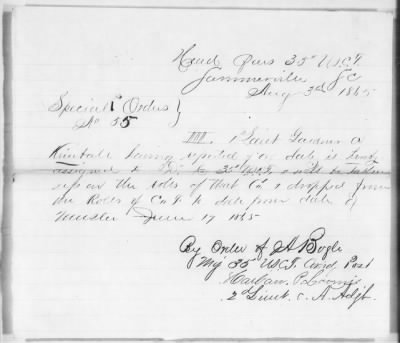 Head Qurs 35th U.S.C.T.
Summerville S.C.
Aug 3rd 1865
Special Orders }
No 55
III. 1st Lieut Gardner A
Kimball having reported for duty is hereby
assigned to Co. 35 U.S.C.T. & will be taken
up on the rolls of that Co. & dropped from
the Rolls of Co. F to date from date of
Muster June 17 1865
By Order of A Bogle
Maj 35 U.S.C.T. Comd. Post
2d Lieut. & A. Adjt.